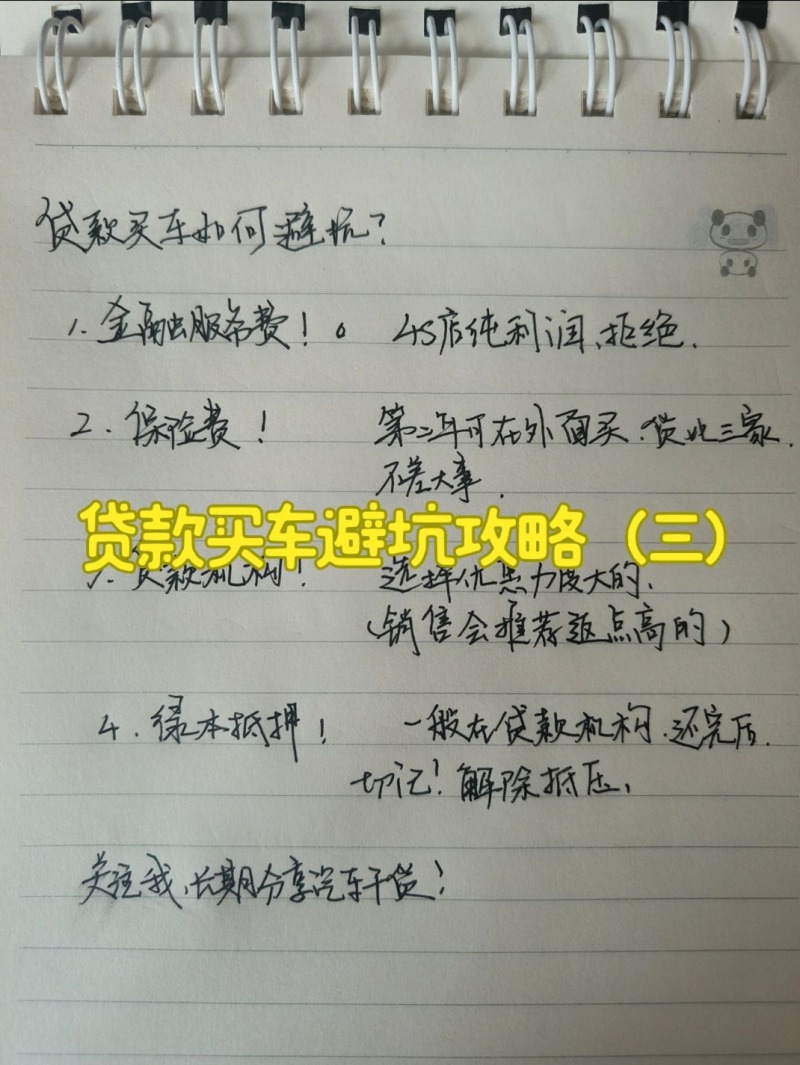 贷款买车如何避坑?
1. 金融服务费! 。 4S店纯利润、拒绝.
2. 保险费! 第二年可在外面买.货比三家.
不差大事.
贷款买车避坑攻略(三)
3. 贷款机构! 选择优惠力度大的、
(销售会推荐返点高的)
4. 绿本抵押! 一般在贷款机构.还完后.
切记!解除抵压、
关注我、长期分享汽车干货!